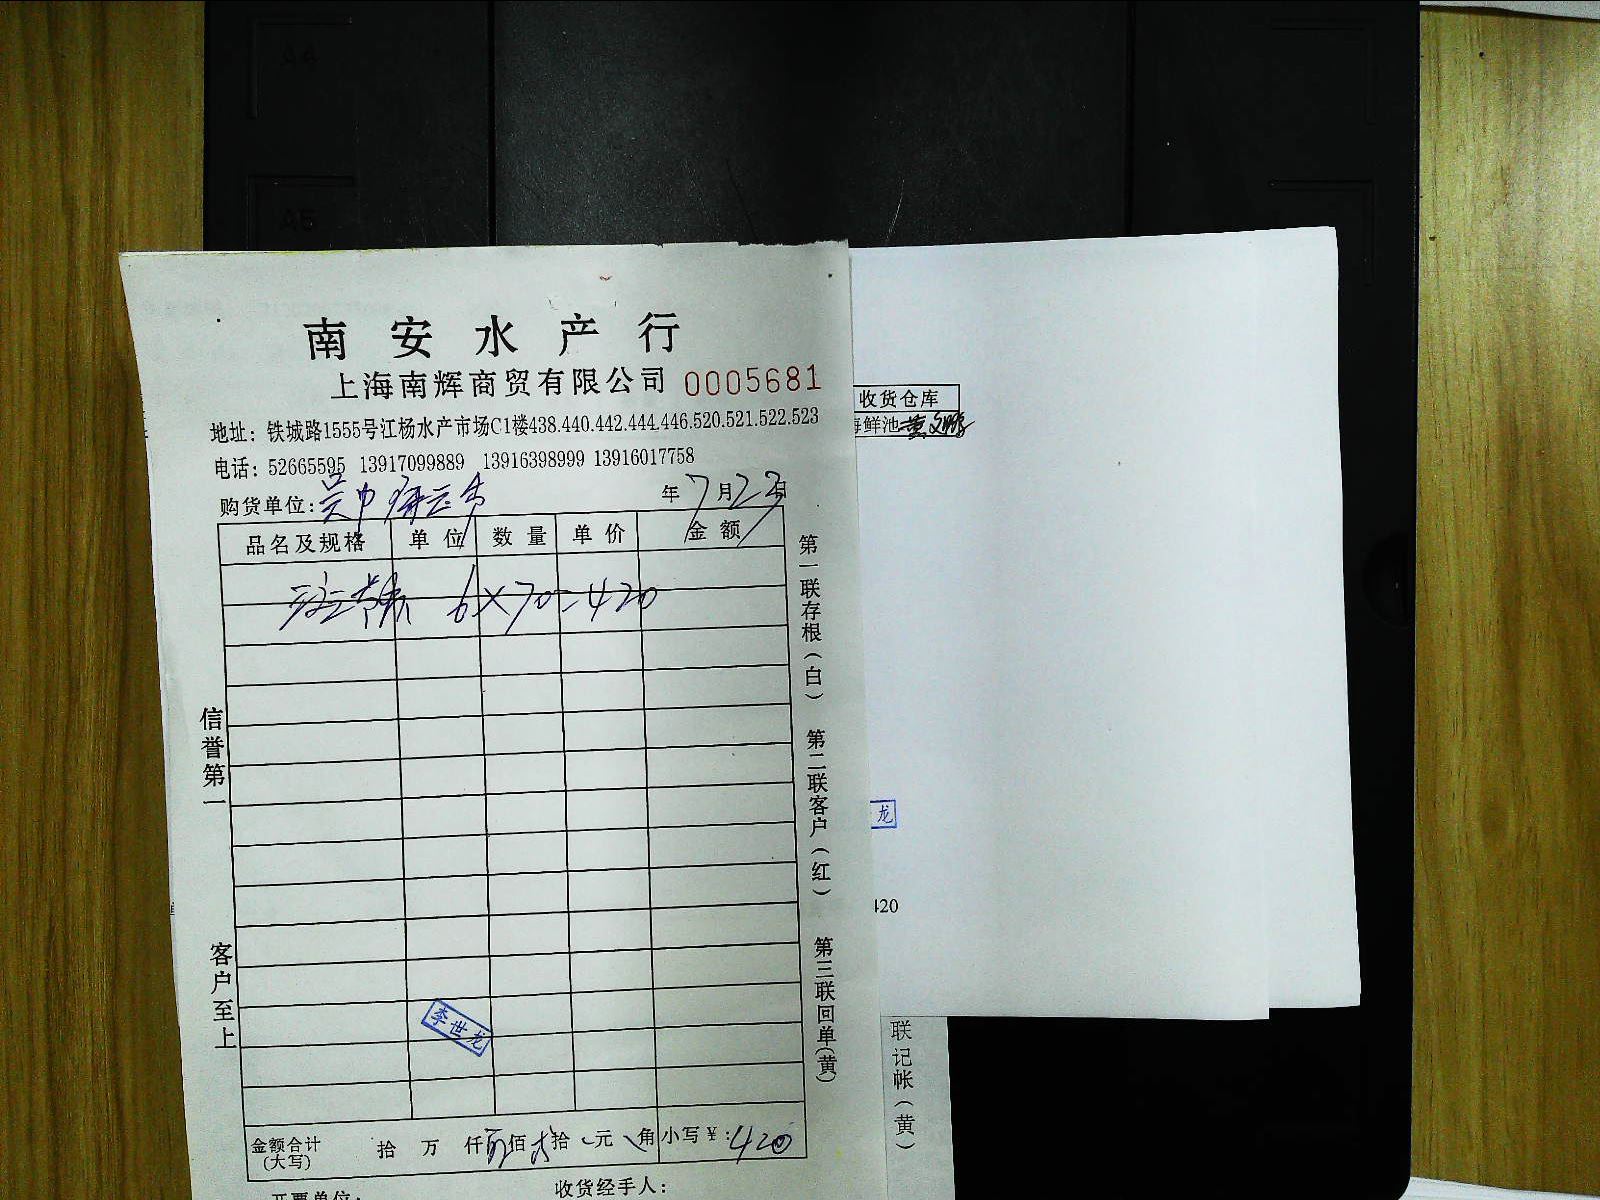 A4
A5
南安水产行
上海南辉商贸有限公司 0005681
地址：铁城路1555号江杨水产市场C1楼438.440.442.444.446.520.521.522.523
电话：52665595 13917099889 13916398999 13916017758
购货单位： 年7月23日
品名及规格 单位 数量 单价 金额
6×70=420
李世龙
金额合计(大写) 拾 万 仟 佰 拾 元 角 小写￥：420
开票单位： 收货经手人：
信誉第一
客户至上
第一联存根（白）
第二联客户（红）
第三联回单（黄）
收货仓库
海鲜池
龙
420
联记帐（黄）